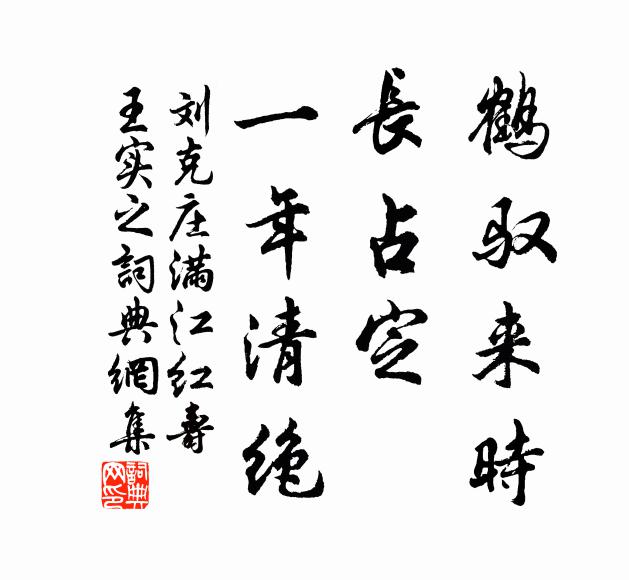 鹤驭来時
長占定
一年清绝
刘克庄满江红壽
王实之詞典網集
詞典网印